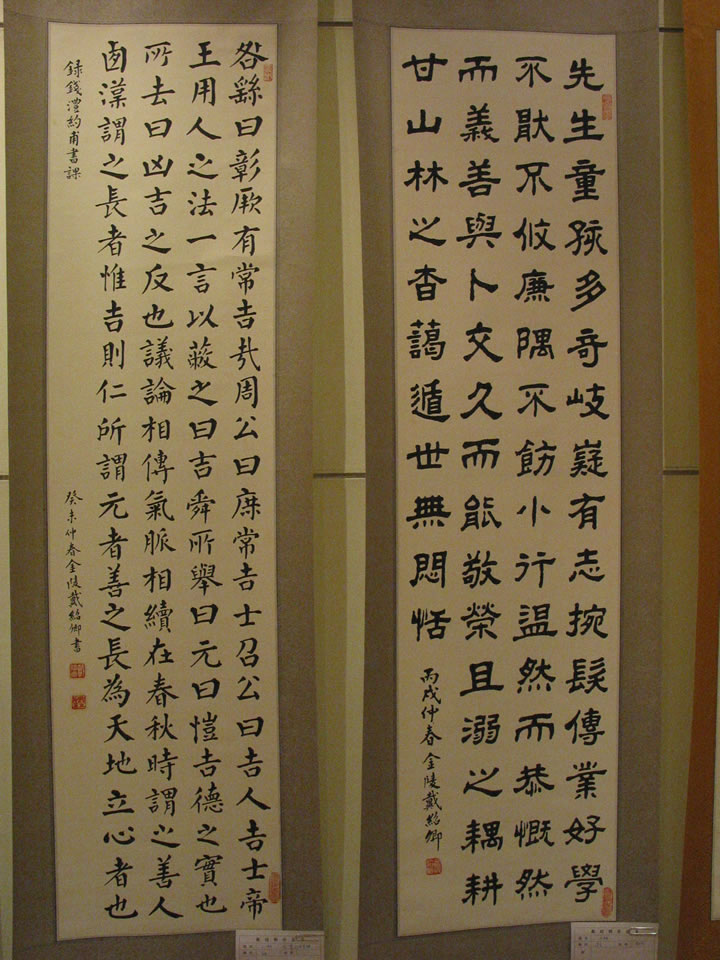 先生童孩多奇岐嶷有志捥髮傳業好學
不猒不攸廉隅不飭小行温然而恭慨然
而義善與卜交久而能敬榮且溺之耦耕
甘山林之杳藹遁世無悶恬
丙戌仲春金陵戴紹卿
咎繇曰彰厥有常吉哉周公曰庶常吉士召公曰吉人吉士帝
王用人之法一言以蔽之曰吉舜所舉曰元曰愷吉德之實也
所去曰凶吉之反也議論相傳氣脈相續在春秋時謂之善人
卥漢謂之長者惟吉則仁所謂元者善之長為天地立心者也
録錢澧約甫書課
癸未仲春金陵戴紹卿書